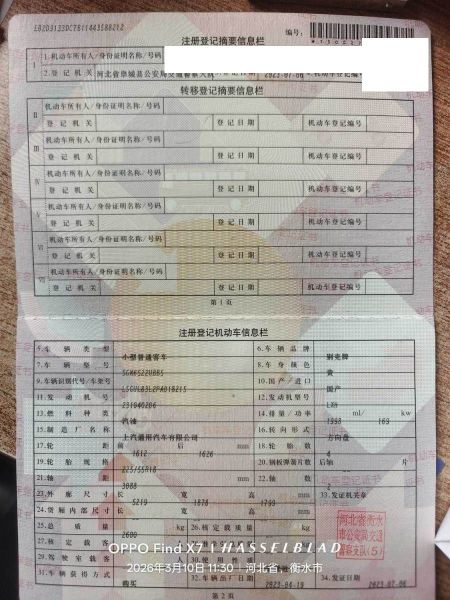 注册登记摘要信息栏
编号:
1.机动车所有人/身份证明名称/号码
I
2.登记机关 河北省阜城县公安局交通警察大队 2023-07-06
转移登记摘要信息栏
II 机动车所有人/身份证明名称/号码
登记机关 登记日期 机动车登记编号
III 机动车所有人/身份证明名称/号码
登记机关 登记日期 机动车登记编号
IV 机动车所有人/身份证明名称/号码
登记机关 登记日期 机动车登记编号
V 机动车所有人/身份证明名称/号码
登记机关 登记日期 机动车登记编号
VI 机动车所有人/身份证明名称/号码
登记机关 登记日期 机动车登记编号
VII 机动车所有人/身份证明名称/号码
登记机关 登记日期 机动车登记编号
第1页
注册登记机动车信息栏
5.车辆类型 小型普通客车 6.车辆品牌 别克牌
7.车辆型号 8.车身颜色 黄
9.车辆识别代号/车架号 10.国产/进口 国产
11.发动机号 231040206 12.发动机型号 LXH
13.燃料种类 汽油 14.排量/功率 1998 ml/ 169 kw
15.制造厂名称 上汽通用汽车有限公司 16.转向形式 方向盘
17.轮距 前 1612 后 1626 mm 18.轮胎数 4
19.轮胎规格 225/55R18 20.钢板弹簧片数 后轴 片
21.轴距 3088 mm 22.轴数 2
23.外廓尺寸 长 5219 宽 1878 高 1793 mm 33.发证机关章
24.货厢内部尺寸 长 宽 高 mm
25.总质量 2600 kg 26.核定载质量 kg
27.核定载客 人
29.驾驶室载客 30.使用性质
31.车辆获得方式 购买 32.车辆出厂日期 2023-04-19 34.发证日期 2023-07-06
河北省衡水
市公安局交通
警察支队(5)
第2页
OPPO Find X7 | HASSELBLAD
2026年3月10日 11:30 河北省，衡水市